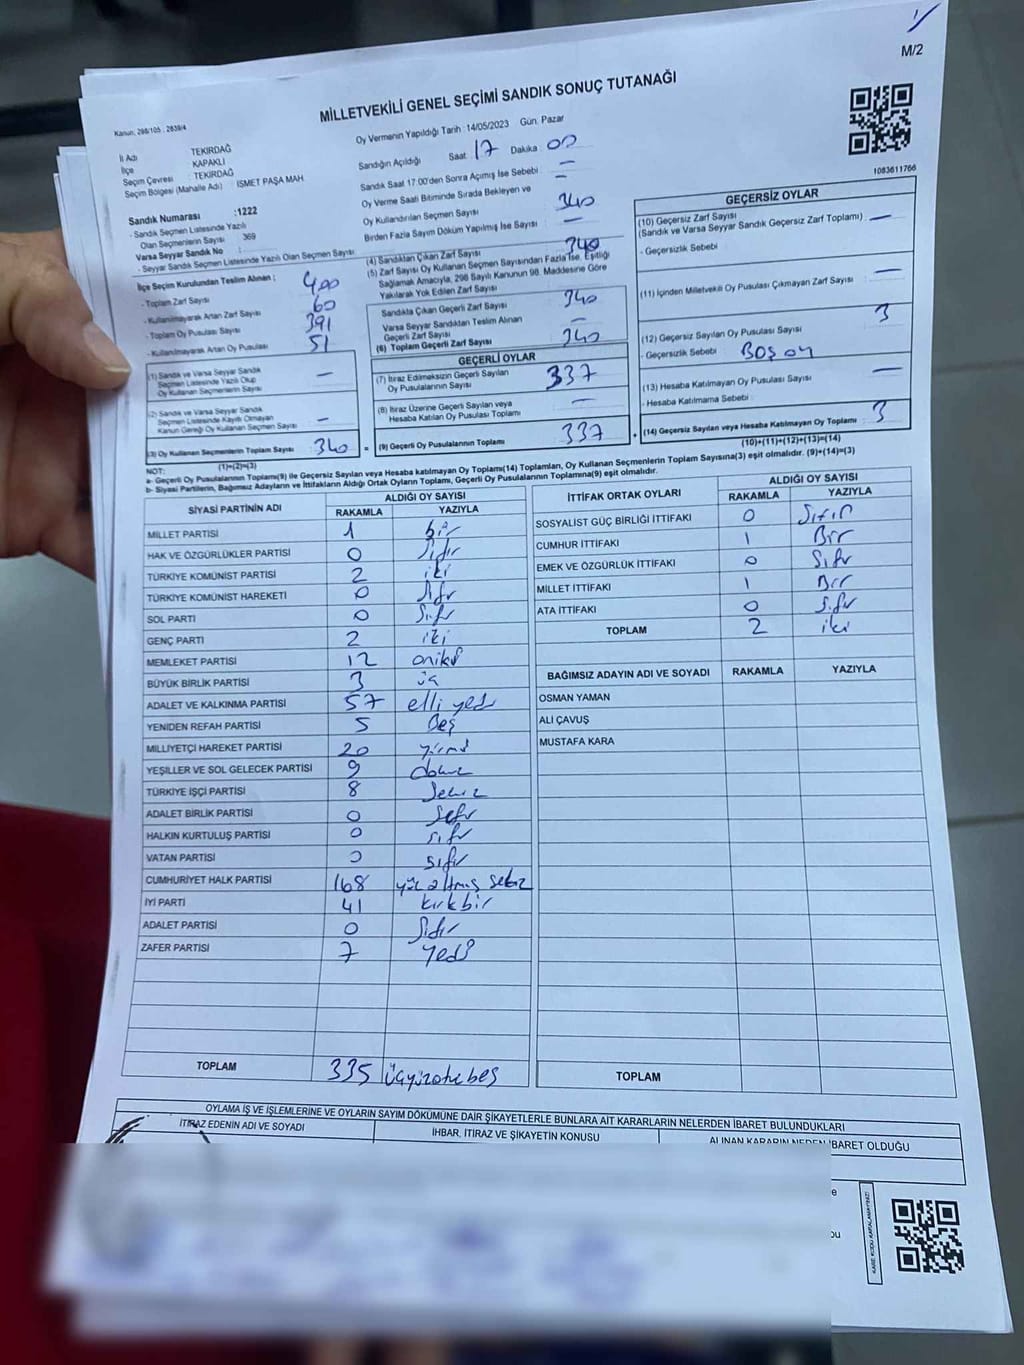 M/2
MİLLETVEKİLİ GENEL SEÇİMİ SANDIK SONUÇ TUTANAĞI
Kanun: 298/105 , 2839/4
Oy Vermenin Yapıldığı Tarih : 14/05/2023 Gün: Pazar
İl Adı TEKİRDAĞ
İlçe KAPAKLI
Seçim Çevresi : TEKİRDAĞ
Seçim Bölgesi (Mahalle Adı) : İSMET PAŞA MAH.
Sandık Numarası :1222
- Sandık Seçmen Listesinde Yazılı
Olan Seçmenlerin Sayısı 369
Varsa Seyyar Sandık No :
- Seyyar Sandık Seçmen Listesinde Yazılı Olan Seçmen Sayısı
Sandığın Açıldığı Saat 17 Dakika 00
Sandık Saat 17:00'den Sonra Açımış İse Sebebi —
Oy Verme Saati Bitiminde Sırada Bekleyen ve —
Oy Kullandırılan Seçmen Sayısı 340
Birden Fazla Sayım Döküm Yapılmış İse Sayısı —
1083611766
İlçe Seçim Kurulundan Teslim Alınan ;
- Toplam Zarf Sayısı 400
- Kullanılmayarak Artan Zarf Sayısı 60
- Toplam Oy Pusulası Sayısı 391
- Kullanılmayarak Artan Oy Pusulası 51
(1) Sandık ve Varsa Seyyar Sandık
Seçmen Listesinde Yazılı Olup
Oy Kullanan Seçmenlerin Sayısı —
(2) Sandık ve Varsa Seyyar Sandık
Seçmen Listesinde Kayıtlı Olmayan
Kanun Gereği Oy Kullanan Seçmen Sayısı —
(3) Oy Kullanan Seçmenlerin Toplam Sayısı 340
(1)+(2)=(3)
(4) Sandıktan Çıkan Zarf Sayısı 340
(5) Zarf Sayısı Oy Kullanan Seçmen Sayısından Fazla İse, Eşitliği
Sağlamak Amacıyla, 298 Sayılı Kanunun 98. Maddesine Göre
Yakılarak Yok Edilen Zarf Sayısı
Sandıkta Çıkan Geçerli Zarf Sayısı 340
Varsa Seyyar Sandıktan Teslim Alınan
Geçerli Zarf Sayısı —
(6) Toplam Geçerli Zarf Sayısı 340
GEÇERLİ OYLAR
(7) İtiraz Edilmeksizin Geçerli Sayılan
Oy Pusulalarının Sayısı 337
(8) İtiraz Üzerine Geçerli Sayılan veya
Hesaba Katılan Oy Pusulası Toplamı —
= (9) Geçerli Oy Pusulalarının Toplamı 337
GEÇERSİZ OYLAR
(10) Geçersiz Zarf Sayısı
(Sandık ve Varsa Seyyar Sandık Geçersiz Zarf Toplamı) —
- Geçersizlik Sebebi
(11) İçinden Milletvekili Oy Pusulası Çıkmayan Zarf Sayısı —
(12) Geçersiz Sayılan Oy Pusulası Sayısı 3
- Geçersizlik Sebebi BOŞ OY
(13) Hesaba Katılmayan Oy Pusulası Sayısı —
- Hesaba Katılmama Sebebi
+ (14) Geçersiz Sayılan veya Hesaba Katılmayan Oy Toplamı 3
(10)+(11)+(12)+(13)=(14)
NOT:
a- Geçerli Oy Pusulalarının Toplamı(9) ile Geçersiz Sayılan veya Hesaba katılmayan Oy Toplamı(14) Toplamları, Oy Kullanan Seçmenlerin Toplam Sayısına(3) eşit olmalıdır. (9)+(14)=(3)
b- Siyasi Partilerin, Bağımsız Adayların ve İttifakların Aldığı Ortak Oyların Toplamı, Geçerli Oy Pusulalarının Toplamına(9) eşit olmalıdır.
SİYASİ PARTİNİN ADI ALDIĞI OY SAYISI
RAKAMLA YAZIYLA
MİLLET PARTİSİ 1 bir
HAK VE ÖZGÜRLÜKLER PARTİSİ 0 sıfır
TÜRKİYE KOMÜNİST PARTİSİ 2 iki
TÜRKİYE KOMÜNİST HAREKETİ 0 sıfır
SOL PARTİ 0 sıfır
GENÇ PARTİ 2 iki
MEMLEKET PARTİSİ 12 oniki
BÜYÜK BİRLİK PARTİSİ 3 üç
ADALET VE KALKINMA PARTİSİ 57 elli yedi
YENİDEN REFAH PARTİSİ 5 beş
MİLLİYETÇİ HAREKET PARTİSİ 20 yirmi
YEŞİLLER VE SOL GELECEK PARTİSİ 9 dokuz
TÜRKİYE İŞÇİ PARTİSİ 8 sekiz
ADALET BİRLİK PARTİSİ 0 sıfır
HALKIN KURTULUŞ PARTİSİ 0 sıfır
VATAN PARTİSİ 0 sıfır
CUMHURİYET HALK PARTİSİ 168 yüz altmış sekiz
İYİ PARTİ 41 kırkbir
ADALET PARTİSİ 0 sıfır
ZAFER PARTİSİ 7 yedi
TOPLAM 335 üçyüzotuzbeş
İTTİFAK ORTAK OYLARI ALDIĞI OY SAYISI
RAKAMLA YAZIYLA
SOSYALİST GÜÇ BİRLİĞİ İTTİFAKI 0 Sıfır
CUMHUR İTTİFAKI 1 Bir
EMEK VE ÖZGÜRLÜK İTTİFAKI 0 Sıfır
MİLLET İTTİFAKI 1 Bir
ATA İTTİFAKI 0 Sıfır
TOPLAM 2 iki
BAĞIMSIZ ADAYIN ADI VE SOYADI RAKAMLA YAZIYLA
OSMAN YAMAN
ALİ ÇAVUŞ
MUSTAFA KARA
TOPLAM
OYLAMA İŞ VE İŞLEMLERİNE VE OYLARIN SAYIM DÖKÜMÜNE DAİR ŞİKAYETLERLE BUNLARA AİT KARARLARIN NELERDEN İBARET BULUNDUKLARI
İTİRAZ EDENİN ADI VE SOYADI İHBAR, İTİRAZ VE ŞİKAYETİN KONUSU ALINAN KARARIN NEDEN İBARET OLDUĞU
KARE KODU KARALAMAYINIZ!